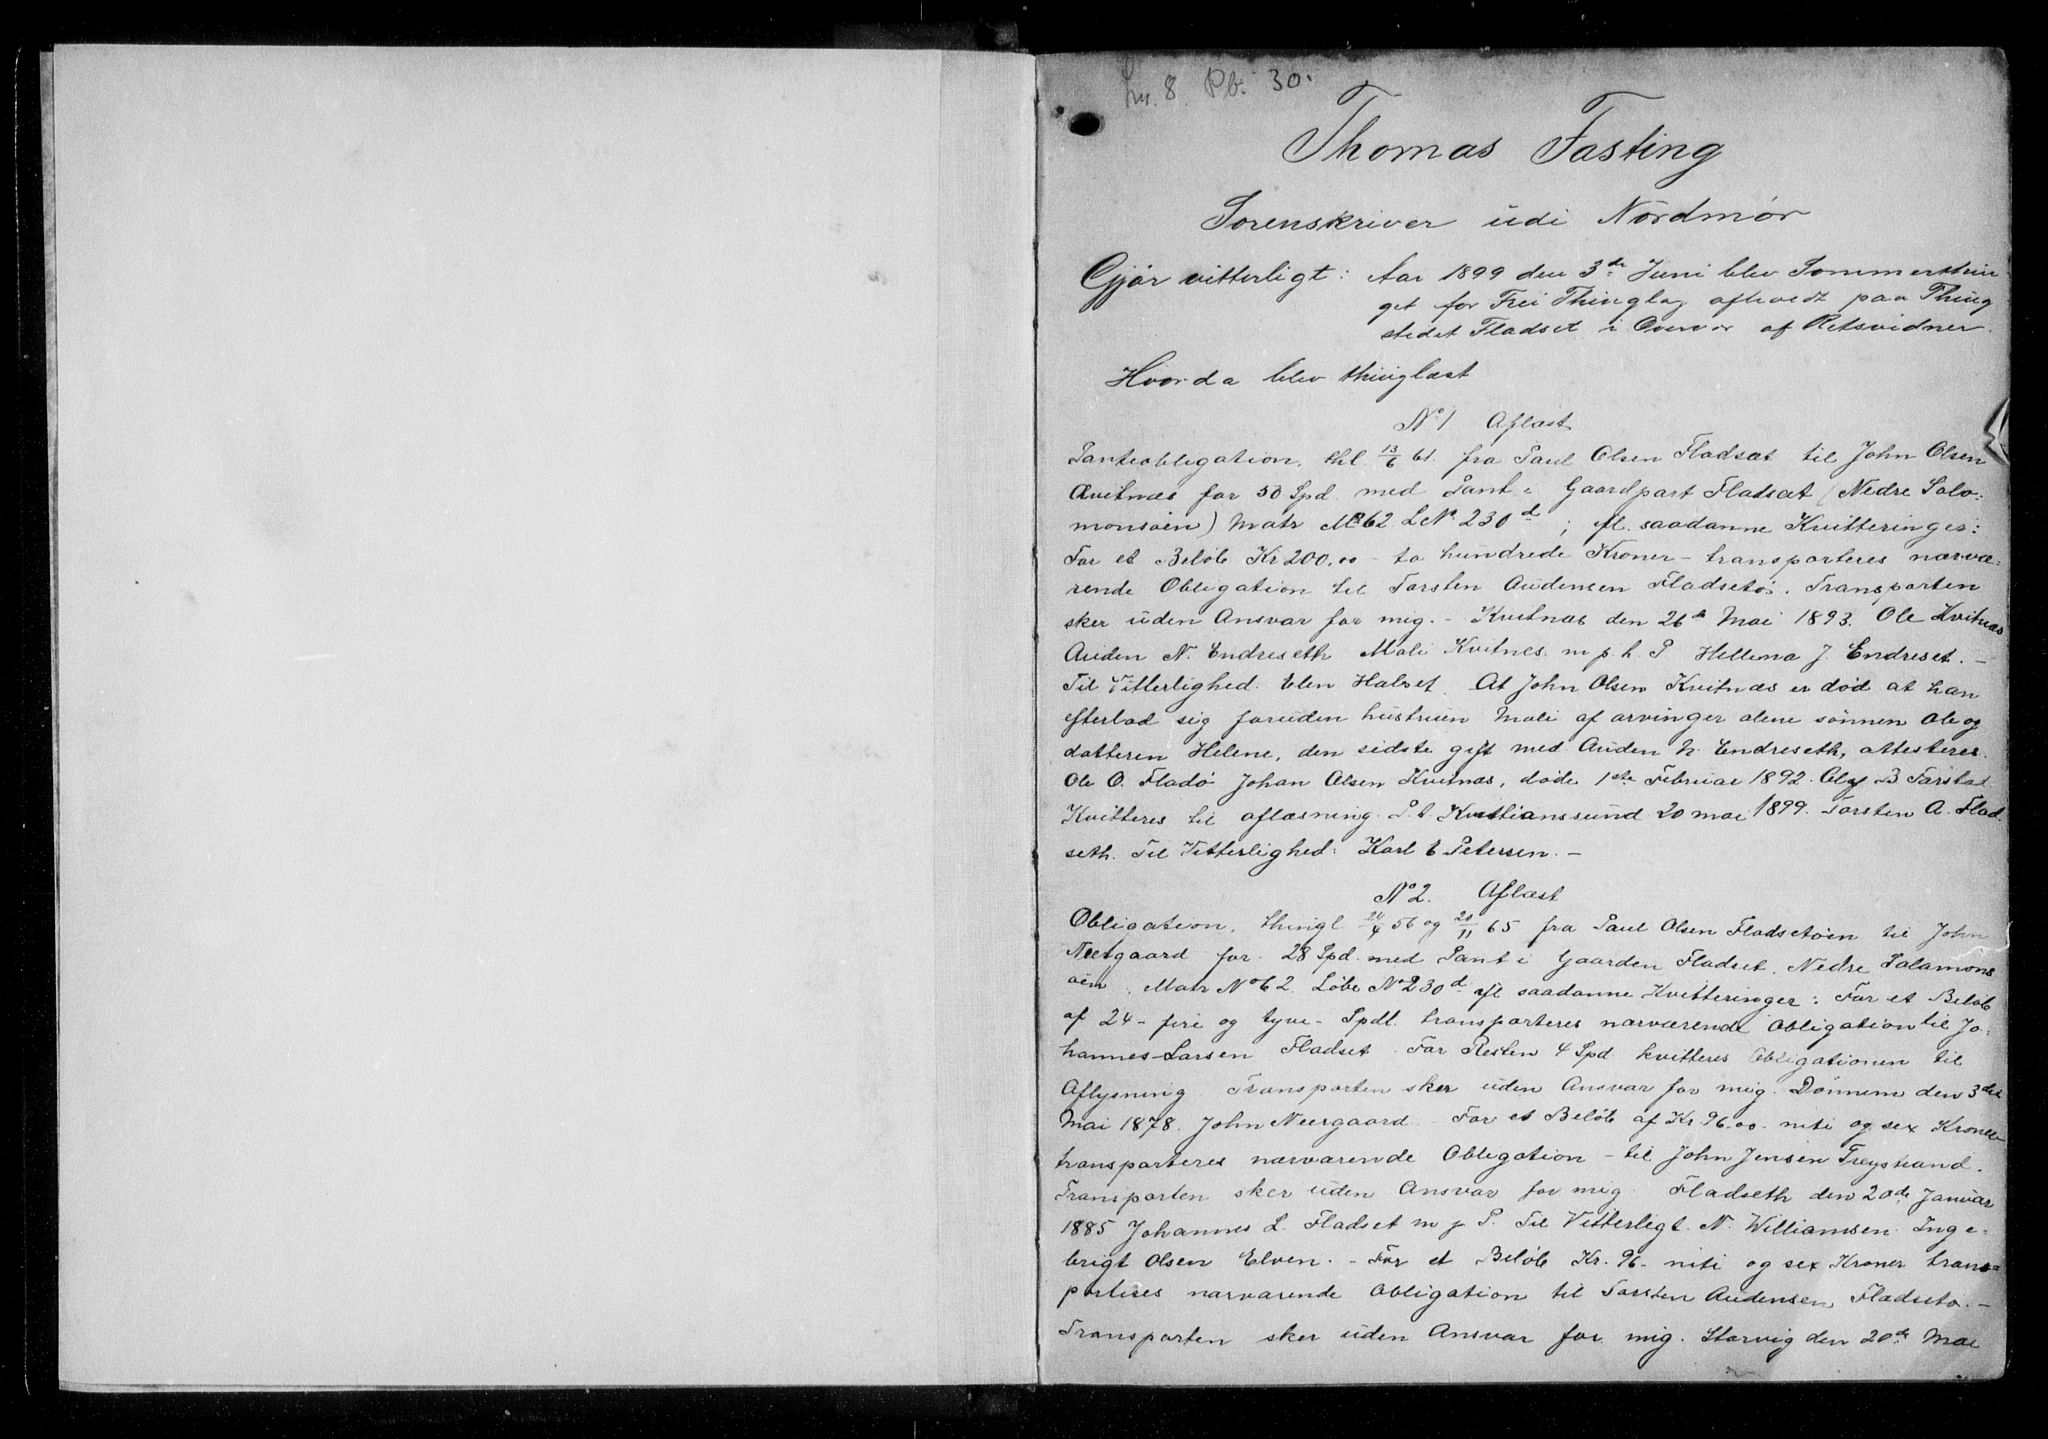 8. Pb. 30.
Thomas Fasting
Sorenskriver udi Nordmør
Gjør vitterligt: Aar 1899 den 3de Juni blev Sommerthin
get for Frei Thinglag afholdt paa Thing
stedet Fladset i Overvær af Retsvidner.
Hvorda blev thinglæst
No 1 Aflæst
Panteobligation, thl 13/6 61. fra Paul Olsen Fladsæt til John Olsen
Qvitnæs for 50 Spd. med Pant i Gaardpart Fladsæt (Nedre Salo:
monsøen) Matr No 62 L No 230 d; fl. saadanne Kvitteringer:
For et Beløb Kr 200,00 - to hundrede Kroner - transporteres nærvæ:
rende Obligation til Torsten Audensen Fladsetø. Transporten
sker uden Ansvar for mig. - Kvitnæs den 26de Mai 1893. Ole Kvitnæs
Auden N. Endreseth Mali Kvitnes. m. p. h. P Hellena J. Endreset. -
Til Vitterlighed. Elen Halset. At John Olsen Kvitnæs er død at han
efterlod sig foruden hustruen Mali af arvinger alene sønnen Ole og
datteren Helene, den sidste gift med Auden N. Endreseth, attesteres.
Ole O. Fladø Johan Olsen Kvitnæs, døde 1ste Februar 1892. Olaf B Tarstad
Kvitteres til aflæsning. P. t. Kristianssund 20 mai 1899. Torsten A. Flad
seth. Til Vitterlighed: Karl E Petersen. -
No 2. Aflæst
Obligation, thingl. 24/4 56 og 20/11 65 fra Paul Olsen Fladsetøen til John
Neergaard for 28 Spd. med Pant i Gaarden Fladset, Nedre Salamons
øen, Matr No 62 Løbe No 230 d fl saadanne Kvitteringer: For et Beløb
af 24 - fire og tyve - Spdl. transporteres nærværende Obligation til Jo:
hannes Larsen Fladset. For Resten 4 Spd kvitteres Obligationen til
Aflysning. Transporten sker uden Ansvar for mig. Dønnem den 3die
Mai 1878. John Neergaard. For et Beløb af Kr. 96.00. niti og sex Kroner
transporteres nærværende Obligation - til John Jensen Freystrand.
Transporten sker uden Ansvar for mig. Fladseth den 20de Januar
1885 Johannes L. Fladset m p P. Til Vitterligt. N. Williamsen. Inge-
brigt Olsen Elven. - For et Beløb Kr. 96 - niti og sex Kroner trans-
porteres nærværende Obligation til Torsten Audensen Fladsetø. -
Transporten sker uden Ansvar for mig. Storvig den 20de Mai